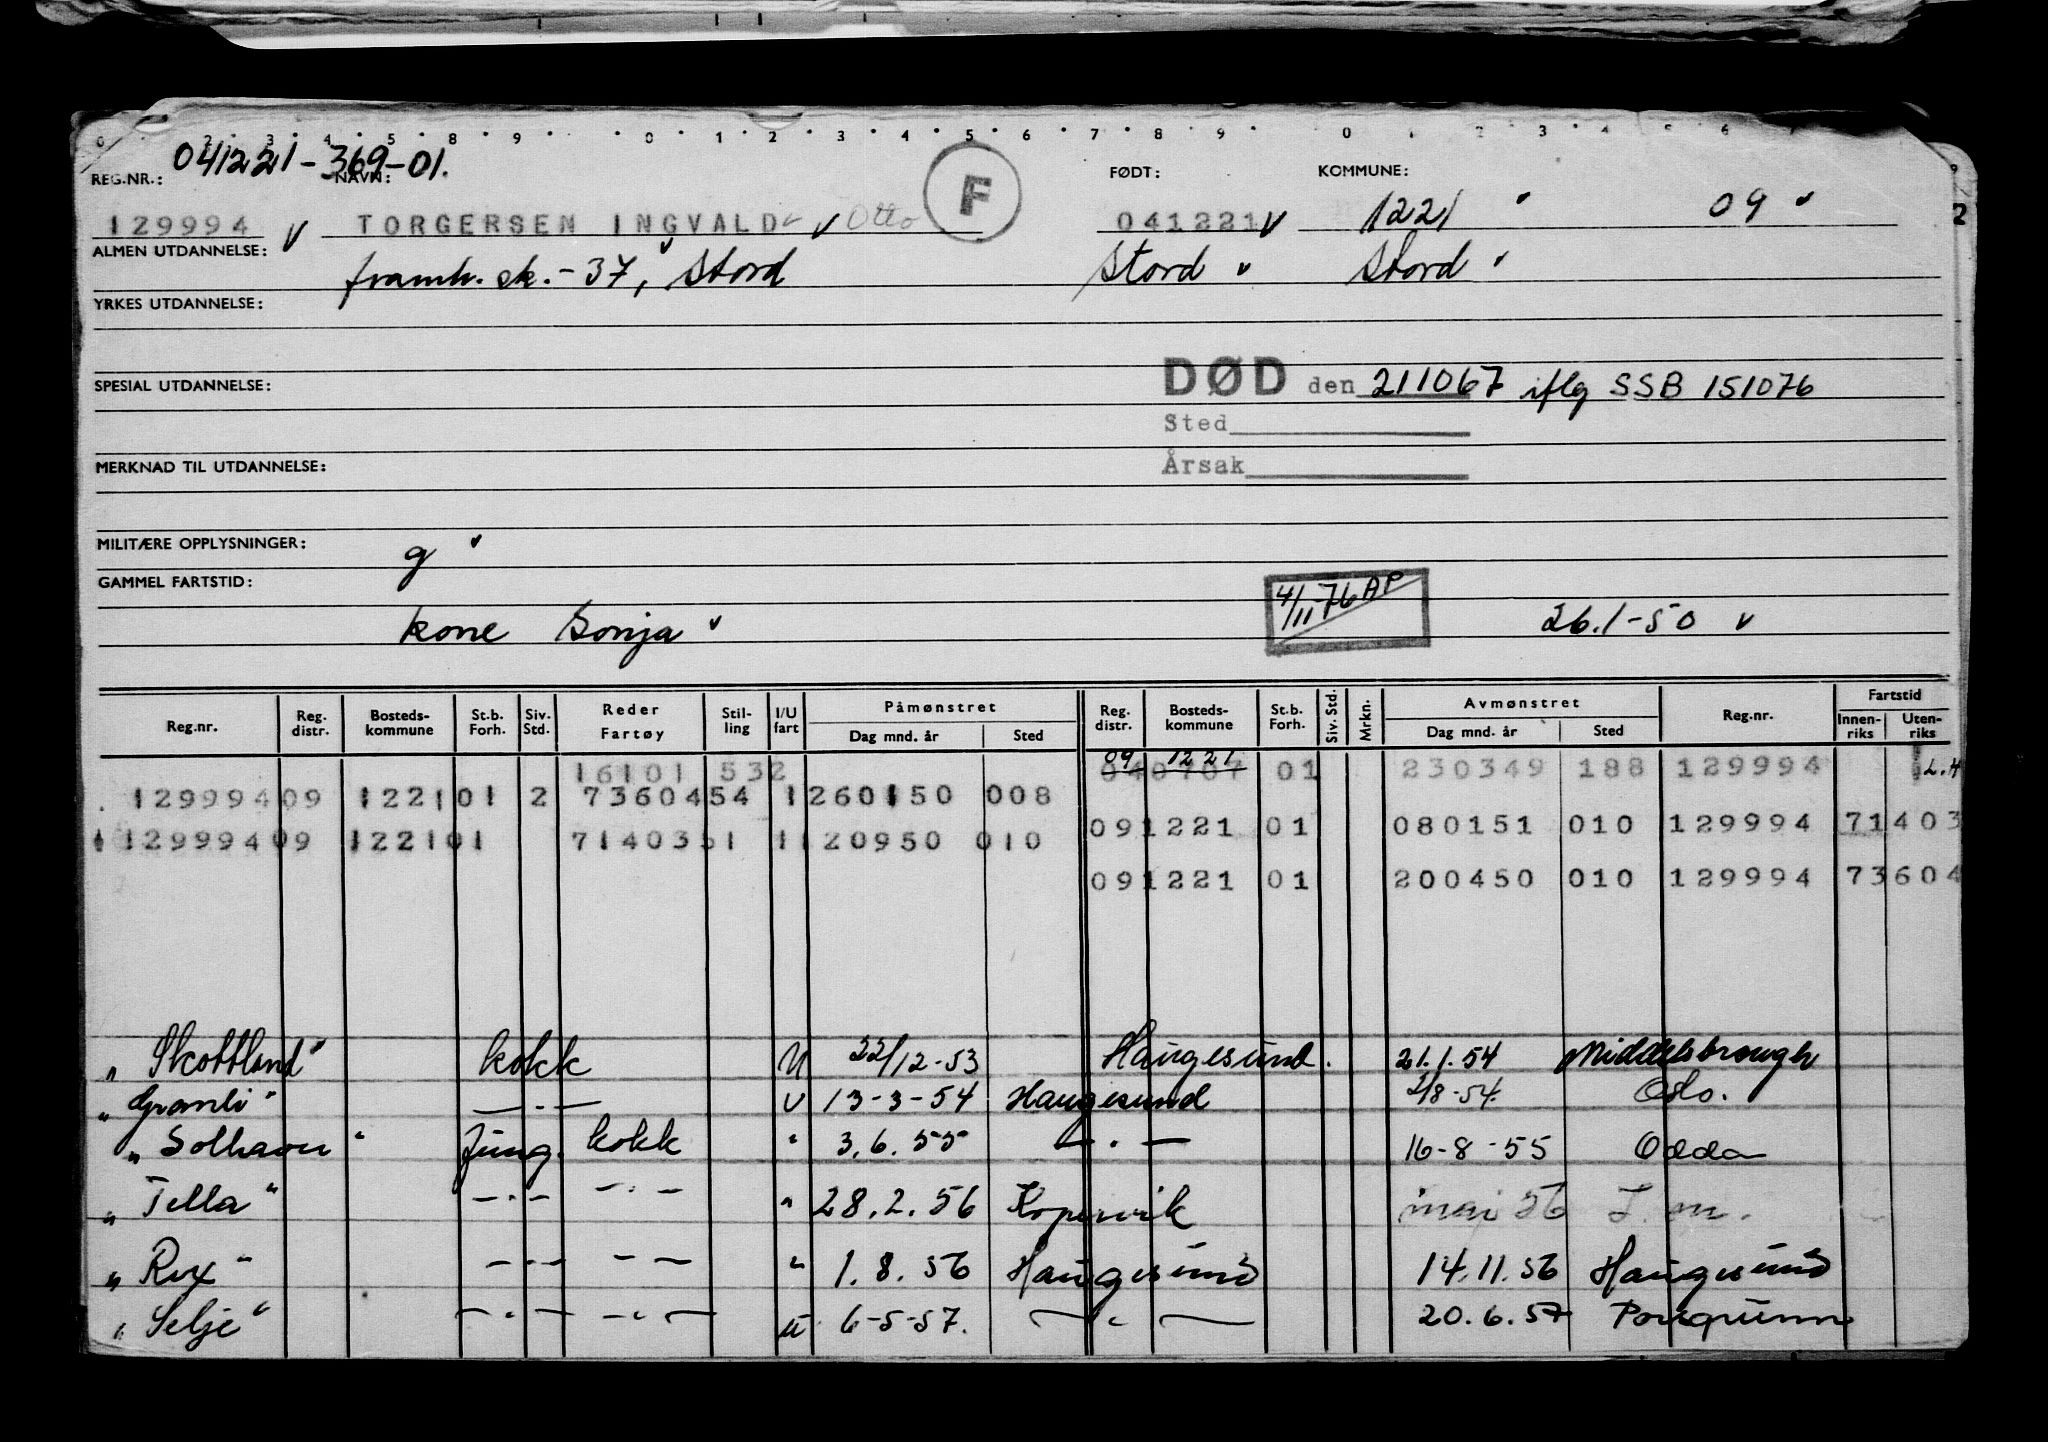 041221-369-01.
REG.NR.: NAVN: FØDT: KOMMUNE:
129994 v TORGERSEN INGVALD v Otto F 041221 v 1221 09
ALMEN UTDANNELSE: framh. sk. - 37, Stord Stord Stord
YRKES UTDANNELSE:
SPESIAL UTDANNELSE: DØD den 211067 iflg SSB 151076
Sted
Årsak
MERKNAD TIL UTDANNELSE:
MILITÆRE OPPLYSNINGER: g
GAMMEL FARTSTID:
kone Sonja 4/11-76 AP 26.1-50 v
Reg.nr. Reg. distr. Bosteds- kommune St.b. Forh. Siv. Std. Reder Fartøy Stil- ling I/U fart Påmønstret Dag mnd. år Sted Reg. distr. Bosteds- kommune St.b. Forh. Siv. Std. Mrkn. Avmønstret Dag mnd. år Sted Reg.nr. Fartstid Innen- riks Uten- riks
09 1221
16101 532 040707 01 230349 188 129994 L.H
129994 09 1221 01 2 73604 54 1 260150 008
091221 01 080151 010 129994 71403
129994 09 1221 01 7140351 1 120950 010
091221 01 200450 010 129994 73604
" Skottland" kokk U 22/12-53 Haugesund. 21.1.54 Middelsbrough
" Granli" — " — U 13-3-54 Haugesund 2/8-54. Oslo.
" Solhavn " Jung. kokk " 3.6.55 — " — 16-8-55 Odda
" Tella" — " — — " — " 28.2.56 Kopervik mai 56 T.m.
" Rex" — " — — — " 1.8.56 Haugesund 14.11.56 Haugesund
" Selje" — " — — " — U 6-5-57. — " — 20.6.57 Porsgrunn